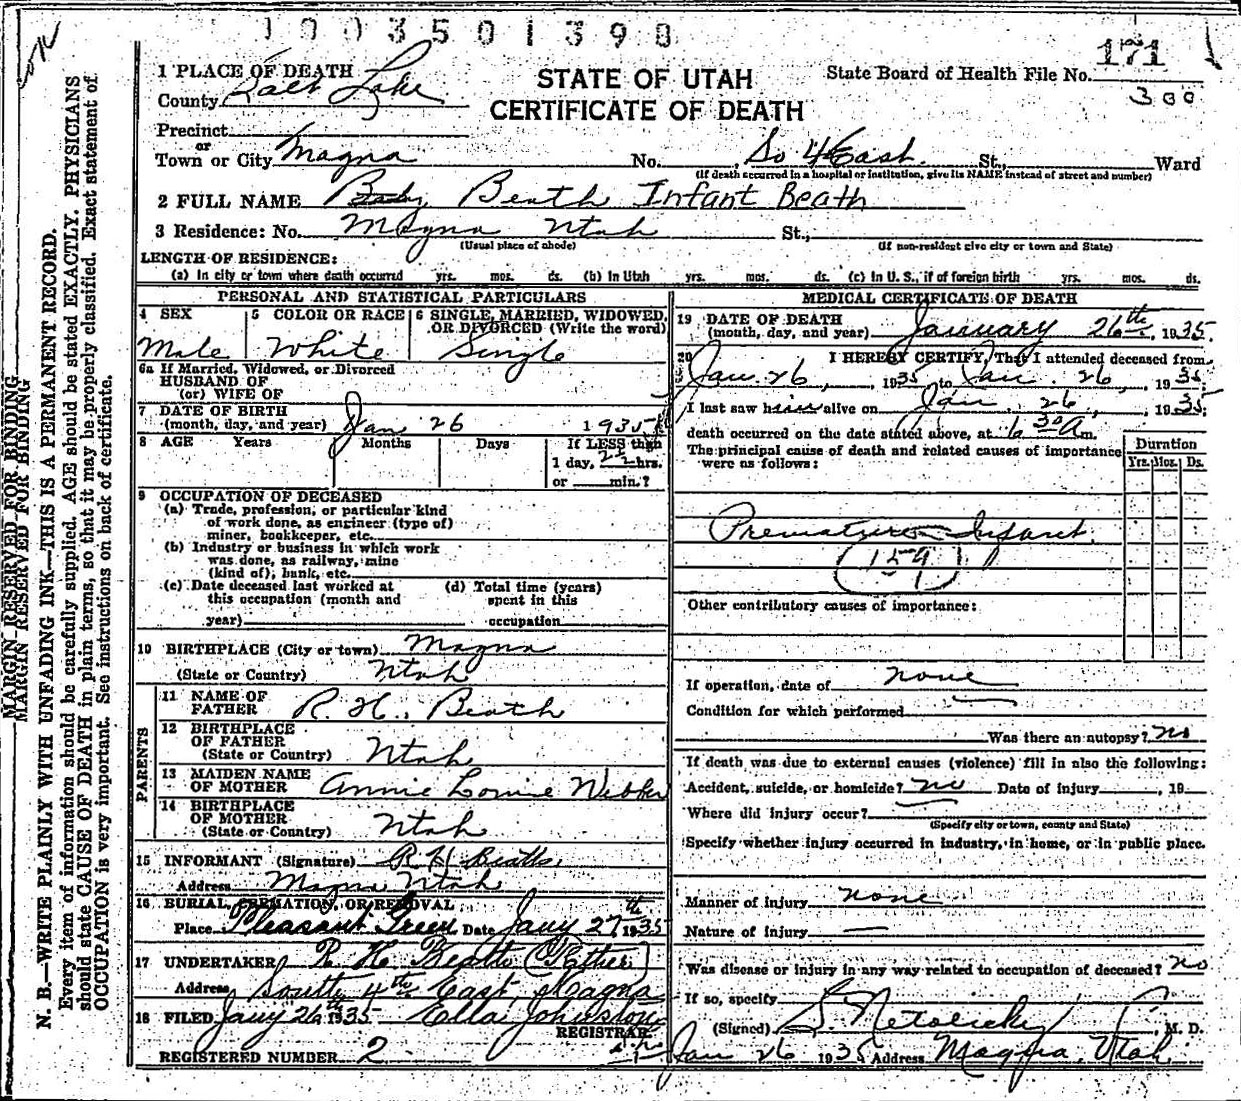 1003501398
1 PLACE OF DEATH
STATE OF UTAH
CERTIFICATE OF DEATH
State Board of Health File No. 171
300
County Salt Lake
Precinct
or
Town or City Magna No. So 4 East St., Ward
(If death occurred in a hospital or institution, give its NAME instead of street and number)
2 FULL NAME Baby Beath Infant Beath
3 Residence: No. Magna Utah St.,
(Usual place of abode) (If non-resident give city or town and State)
LENGTH OF RESIDENCE:
(a) In city or town where death occurred yrs. mos. ds. (b) In Utah yrs. mos. ds. (c) In U. S., if of foreign birth yrs. mos. ds.
PERSONAL AND STATISTICAL PARTICULARS
4 SEX 5 COLOR OR RACE 6 SINGLE, MARRIED, WIDOWED, OR DIVORCED (Write the word)
Male White Single
6a If Married, Widowed, or Divorced
HUSBAND OF
(or) WIFE OF
7 DATE OF BIRTH
(month, day, and year) Jan 26 1935
8 AGE Years Months Days If LESS than
1 day, 2½ hrs.
or min.?
9 OCCUPATION OF DECEASED
(a) Trade, profession, or particular kind
of work done, as engineer (type of)
miner, bookkeeper, etc.
(b) Industry or business in which work
was done, as railway, mine
(kind of), bank, etc.
(c) Date deceased last worked at
this occupation (month and
year)
(d) Total time (years)
spent in this
occupation
10 BIRTHPLACE (City or town) Magna
(State or Country) Utah
PARENTS
11 NAME OF
FATHER R. H. Beath
12 BIRTHPLACE
OF FATHER
(State or Country) Utah
13 MAIDEN NAME
OF MOTHER Annie Louise Webber
14 BIRTHPLACE
OF MOTHER
(State or Country) Utah
15 INFORMANT (Signature) R H Beath
Address Magna Utah
16 BURIAL, CREMATION, OR REMOVAL
Place Pleasant Green Date Jany 27th 1935
17 UNDERTAKER R. H. Beath (Father)
Address South 4th East, Magna
18 FILED Jany 26 1935 Ella Johnston
REGISTRAR
REGISTERED NUMBER 2
MEDICAL CERTIFICATE OF DEATH
19 DATE OF DEATH
(month, day, and year) January 26th, 1935.
20 I HEREBY CERTIFY, That I attended deceased from
Jan. 26, 1935 to Jan. 26, 1935;
I last saw him alive on Jan. 26, 1935;
death occurred on the date stated above, at 6 30 A m.
The principal cause of death and related causes of importance
were as follows:
Duration
Yrs. Mos. Ds.
Premature Infant.
(159)
1
Other contributory causes of importance:
If operation, date of none
Condition for which performed
Was there an autopsy? no
If death was due to external causes (violence) fill in also the following:
Accident, suicide, or homicide? no Date of injury , 19
Where did injury occur?
(Specify city or town, county and State)
Specify whether injury occurred in industry, in home, or in public place.
Manner of injury none
Nature of injury
Was disease or injury in any way related to occupation of deceased? no
If so, specify
(Signed) S. Netolicky, M. D.
Jan 26 1935 Address Magna, Utah
MARGIN RESERVED FOR BINDING
MARGIN RESERVED FOR BINDING
N. B.—WRITE PLAINLY WITH UNFADING INK—THIS IS A PERMANENT RECORD.
Every item of information should be carefully supplied. AGE should be stated EXACTLY. PHYSICIANS
should state CAUSE OF DEATH in plain terms, so that it may be properly classified. Exact statement of
OCCUPATION is very important. See instructions on back of certificate.